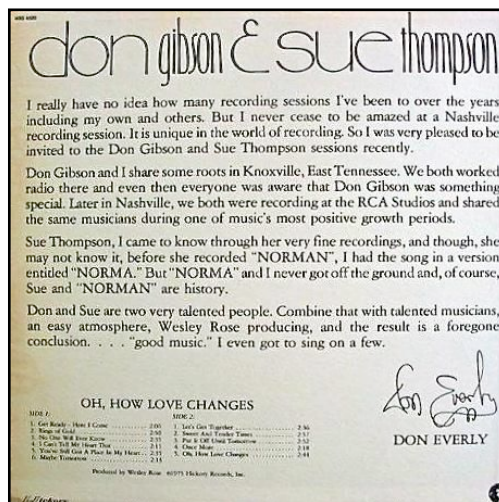 don gibson & sue thompson
I really have no idea how many recording sessions I've been to over the years
including my own and others. But I never cease to be amazed at a Nashville
recording session. It is unique in the world of recording. So I was very pleased to be
invited to the Don Gibson and Sue Thompson sessions recently.
Don Gibson and I share some roots in Knoxville, East Tennessee. We both worked
radio there and even then everyone was aware that Don Gibson was something
special. Later in Nashville, we both were recording at the RCA Studios and shared
the same musicians during one of music's most positive growth periods.
Sue Thompson, I came to know through her very fine recordings, and though, she
may not know it, before she recorded "NORMAN", I had the song in a version
entitled "NORMA." But "NORMA" and I never got off the ground and, of course,
Sue and "NORMAN" are history.
Don and Sue are two very talented people. Combine that with talented musicians,
an easy atmosphere, Wesley Rose producing, and the result is a foregone
conclusion. . . . "good music." I even got to sing on a few.
Don Everly
DON EVERLY
OH, HOW LOVE CHANGES
SIDE 1:
1. Get Ready - Here I Come
2. Rings of Gold
3. No One Will Ever Know
4. I Can't Tell My Heart That
5. You've Still Got A Place In My Heart
6. Maybe Tomorrow
SIDE 2:
1. Let's Get Together
2. Sweet And Tender Times
3. Put It Off Until Tomorrow
4. Once More
5. Oh, How Love Changes
Produced by Wesley Rose ©1975 Hickory Records, Inc.
Hickory